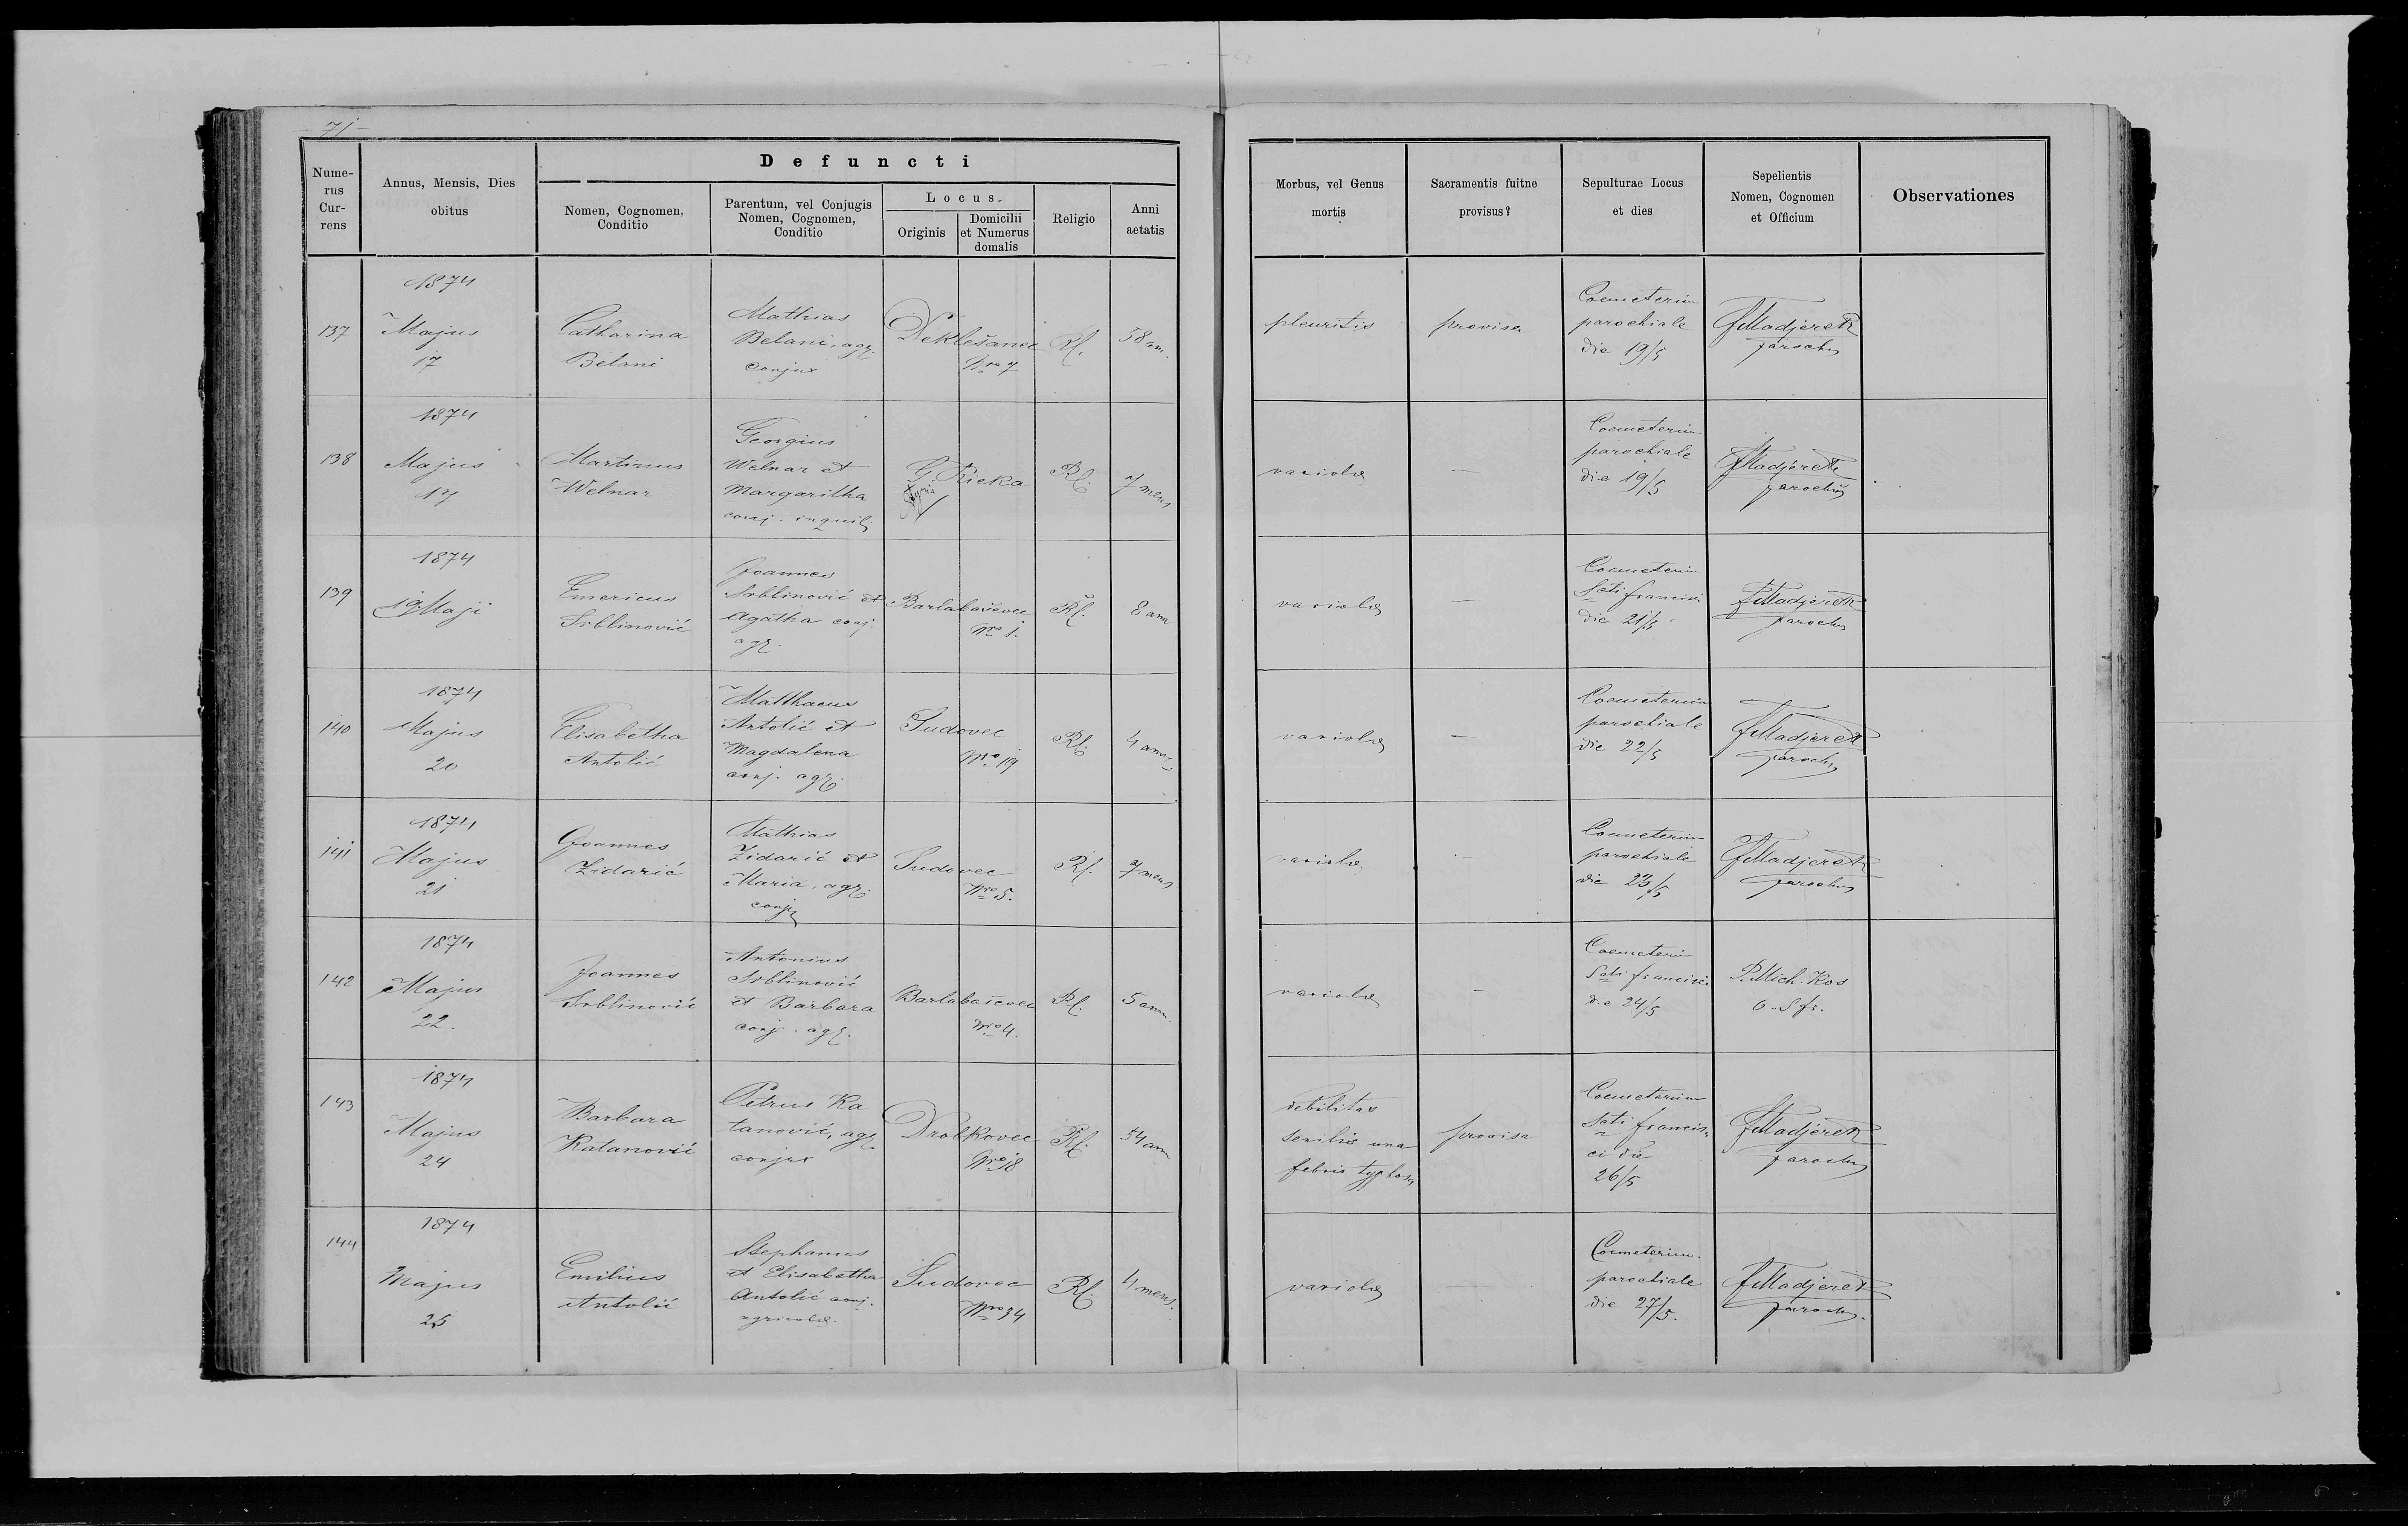 71
Defuncti
Nume-
rus
Cur-
rens
Annus, Mensis, Dies
obitus
Nomen, Cognomen,
Conditio
Parentum, vel Conjugis
Nomen, Cognomen,
Conditio
Locus.
Originis
Domicilii
et Numerus
domalis
Religio
Anni
aetatis
Morbus, vel Genus
mortis
Sacramentis fuitne
provisus?
Sepulturae Locus
et dies
Sepelientis
Nomen, Cognomen
et Officium
Observationes
137
1874
Majus
17
Catharina
Belani
Mathias
Belani, agr.
conjux
Deklešanec
Nro 7
Rl.
58 an.
pleuritis
provisa
Coemeterium
parochiale
die 19/5
FMadjerek
parochus
138
1874
Majus
17
Martinus
Welnar
Georgius
Welnar et
Margaritha
conj. inquil.
G. Rieka
Rl.
7 mens
variola
—
Coemeterium
parochiale
die 19/5
FMadjerek
parochus
139
1874
19 Maji
Emericus
Srblinović
Joannes
Srblinović et
Agatha conj.
agr.
Barlabaševec
Nro 1.
Rl.
8 ann
variola
—
Coemeterium
Scti francisci
die 21/5
FMadjerek
parochus
140
1874
Majus
20
Elisabetha
Antolić
Matthaeus
Antolić et
Magdalena
conj. agr.
Sudovec
Nro 19
Rl.
4 ann
variola
—
Coemeterium
parochiale
die 22/5
FMadjerek
parochus
141
1874
Majus
21
Joannes
Zidarić
Mathias
Zidarić et
Maria, agr.
conj.
Sudovec
Nro 5.
Rl.
7 mens
variola
—
Coemeterium
parochiale
die 23/5
FMadjerek
parochus
142
1874
Majus
22.
Joannes
Srblinović
Antonius
Srblinović
et Barbara
conj. agr.
Barlabaševec
Nro 4.
Rl.
5 ann.
variola
—
Coemeterium
Scti francisci
die 24/5
P. Mich. Kos
O. S fr.
143
1874
Majus
24
Barbara
Katanović
Petrus Ka
tanović, agr.
conjux
Drobkovec
Nro 18
Rl.
54 ann
debilitas
senilis una
febris typhosa
provisa
Coemeterium
Scti francis
ci die
26/5
FMadjerek
parochus
144
1874
Majus
25
Emilius
Antolić
Stephanus
et Elisabetha
Antolić conj.
agricolae.
Sudovec
Nro 34
Rl.
4 mens.
variola
—
Coemeterium
parochiale
die 27/5.
FMadjerek
parochus.